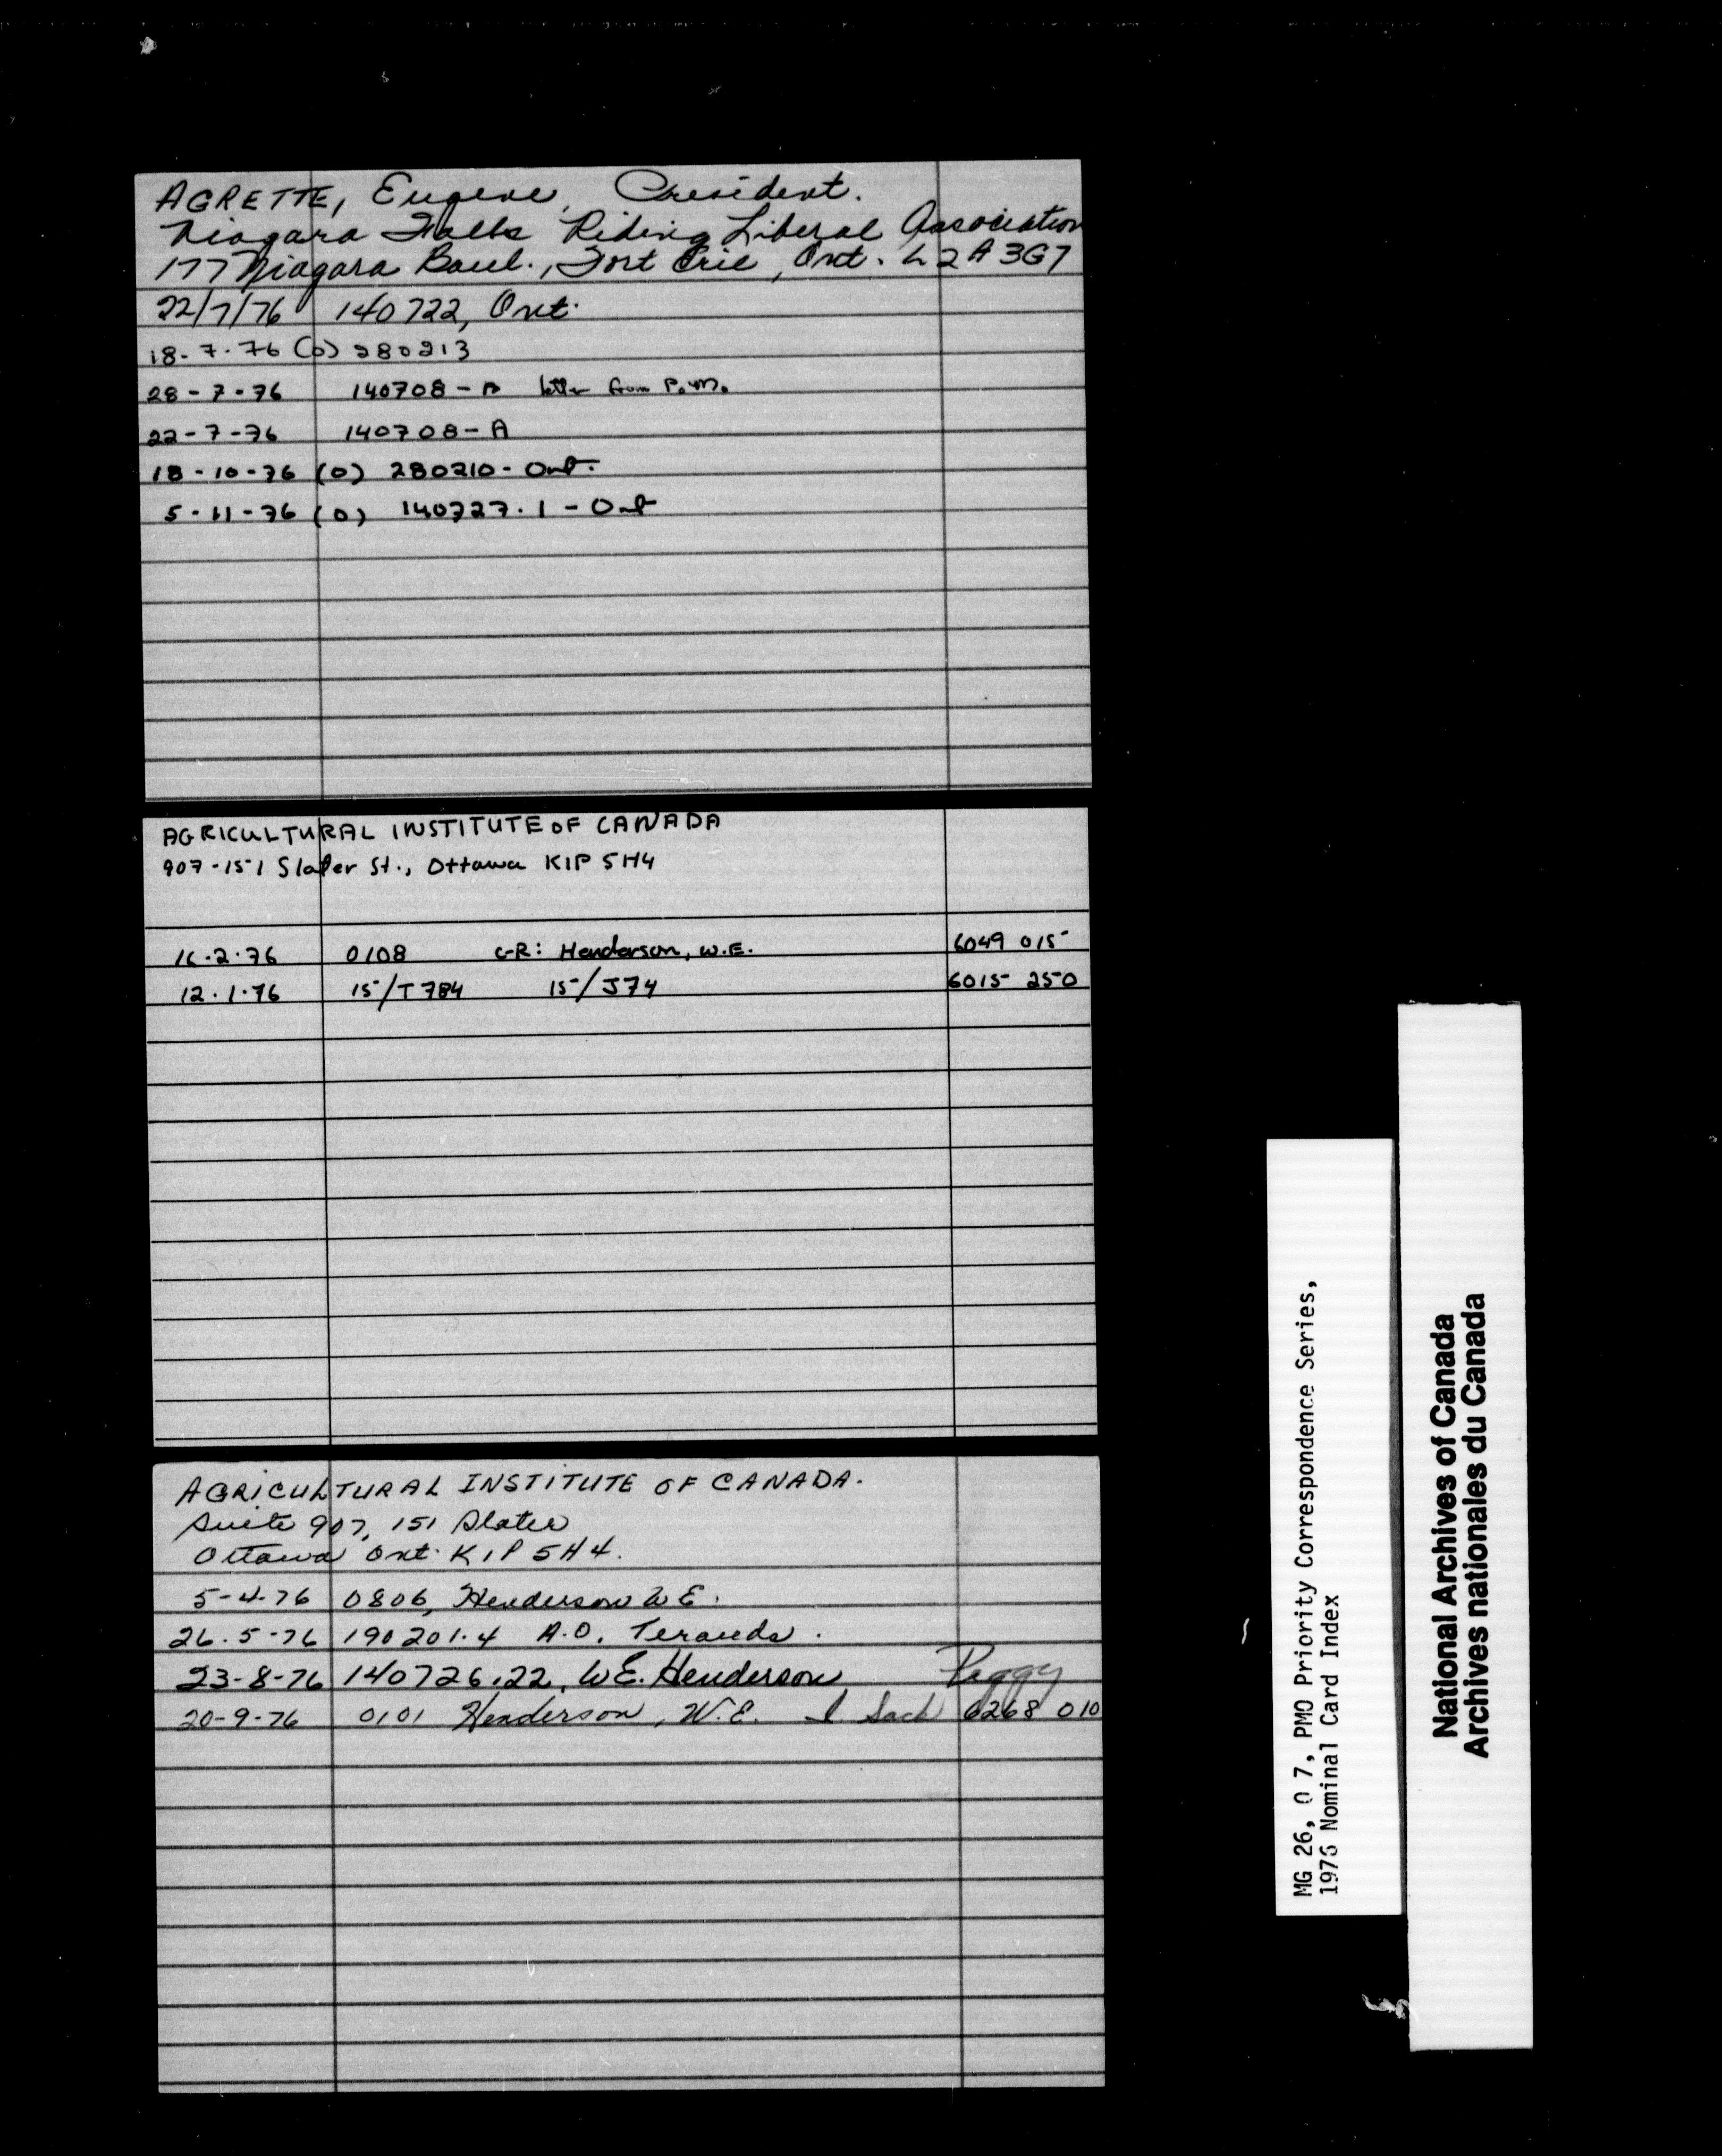 AGRETTE, Eugene, President.
Niagara Falls Riding Liberal Association
177 Niagara Boul., Fort Erie, Ont. L2A 3G7
22/7/76 140722, Ont.
18-7-76 (0) 280213
28-7-76 140708-A letter from P.M.
22-7-76 140708-A
18-10-76 (0) 280210-Ont.
5-11-76 (0) 140727.1-Ont
AGRICULTURAL INSTITUTE OF CANADA
907-151 Slater St., Ottawa K1P 5H4
16.2.76 0108 C-R: Henderson, W.E. 6049 015
12.1.76 15/T784 15/J74 6015 250
AGRICULTURAL INSTITUTE OF CANADA.
Suite 907, 151 Slater
Ottawa Ont. K1P 5H4.
5-4-76 0806, Henderson W E.
26.5-76 190201.4 A.O.
23-8-76 140726.22, W.E. Henderson Peggy
20-9-76 0101 Henderson, W.E. 6268 010
MG 26, O 7, PMO Priority Correspondence Series,
1976 Nominal Card Index
National Archives of Canada
Archives nationales du Canada